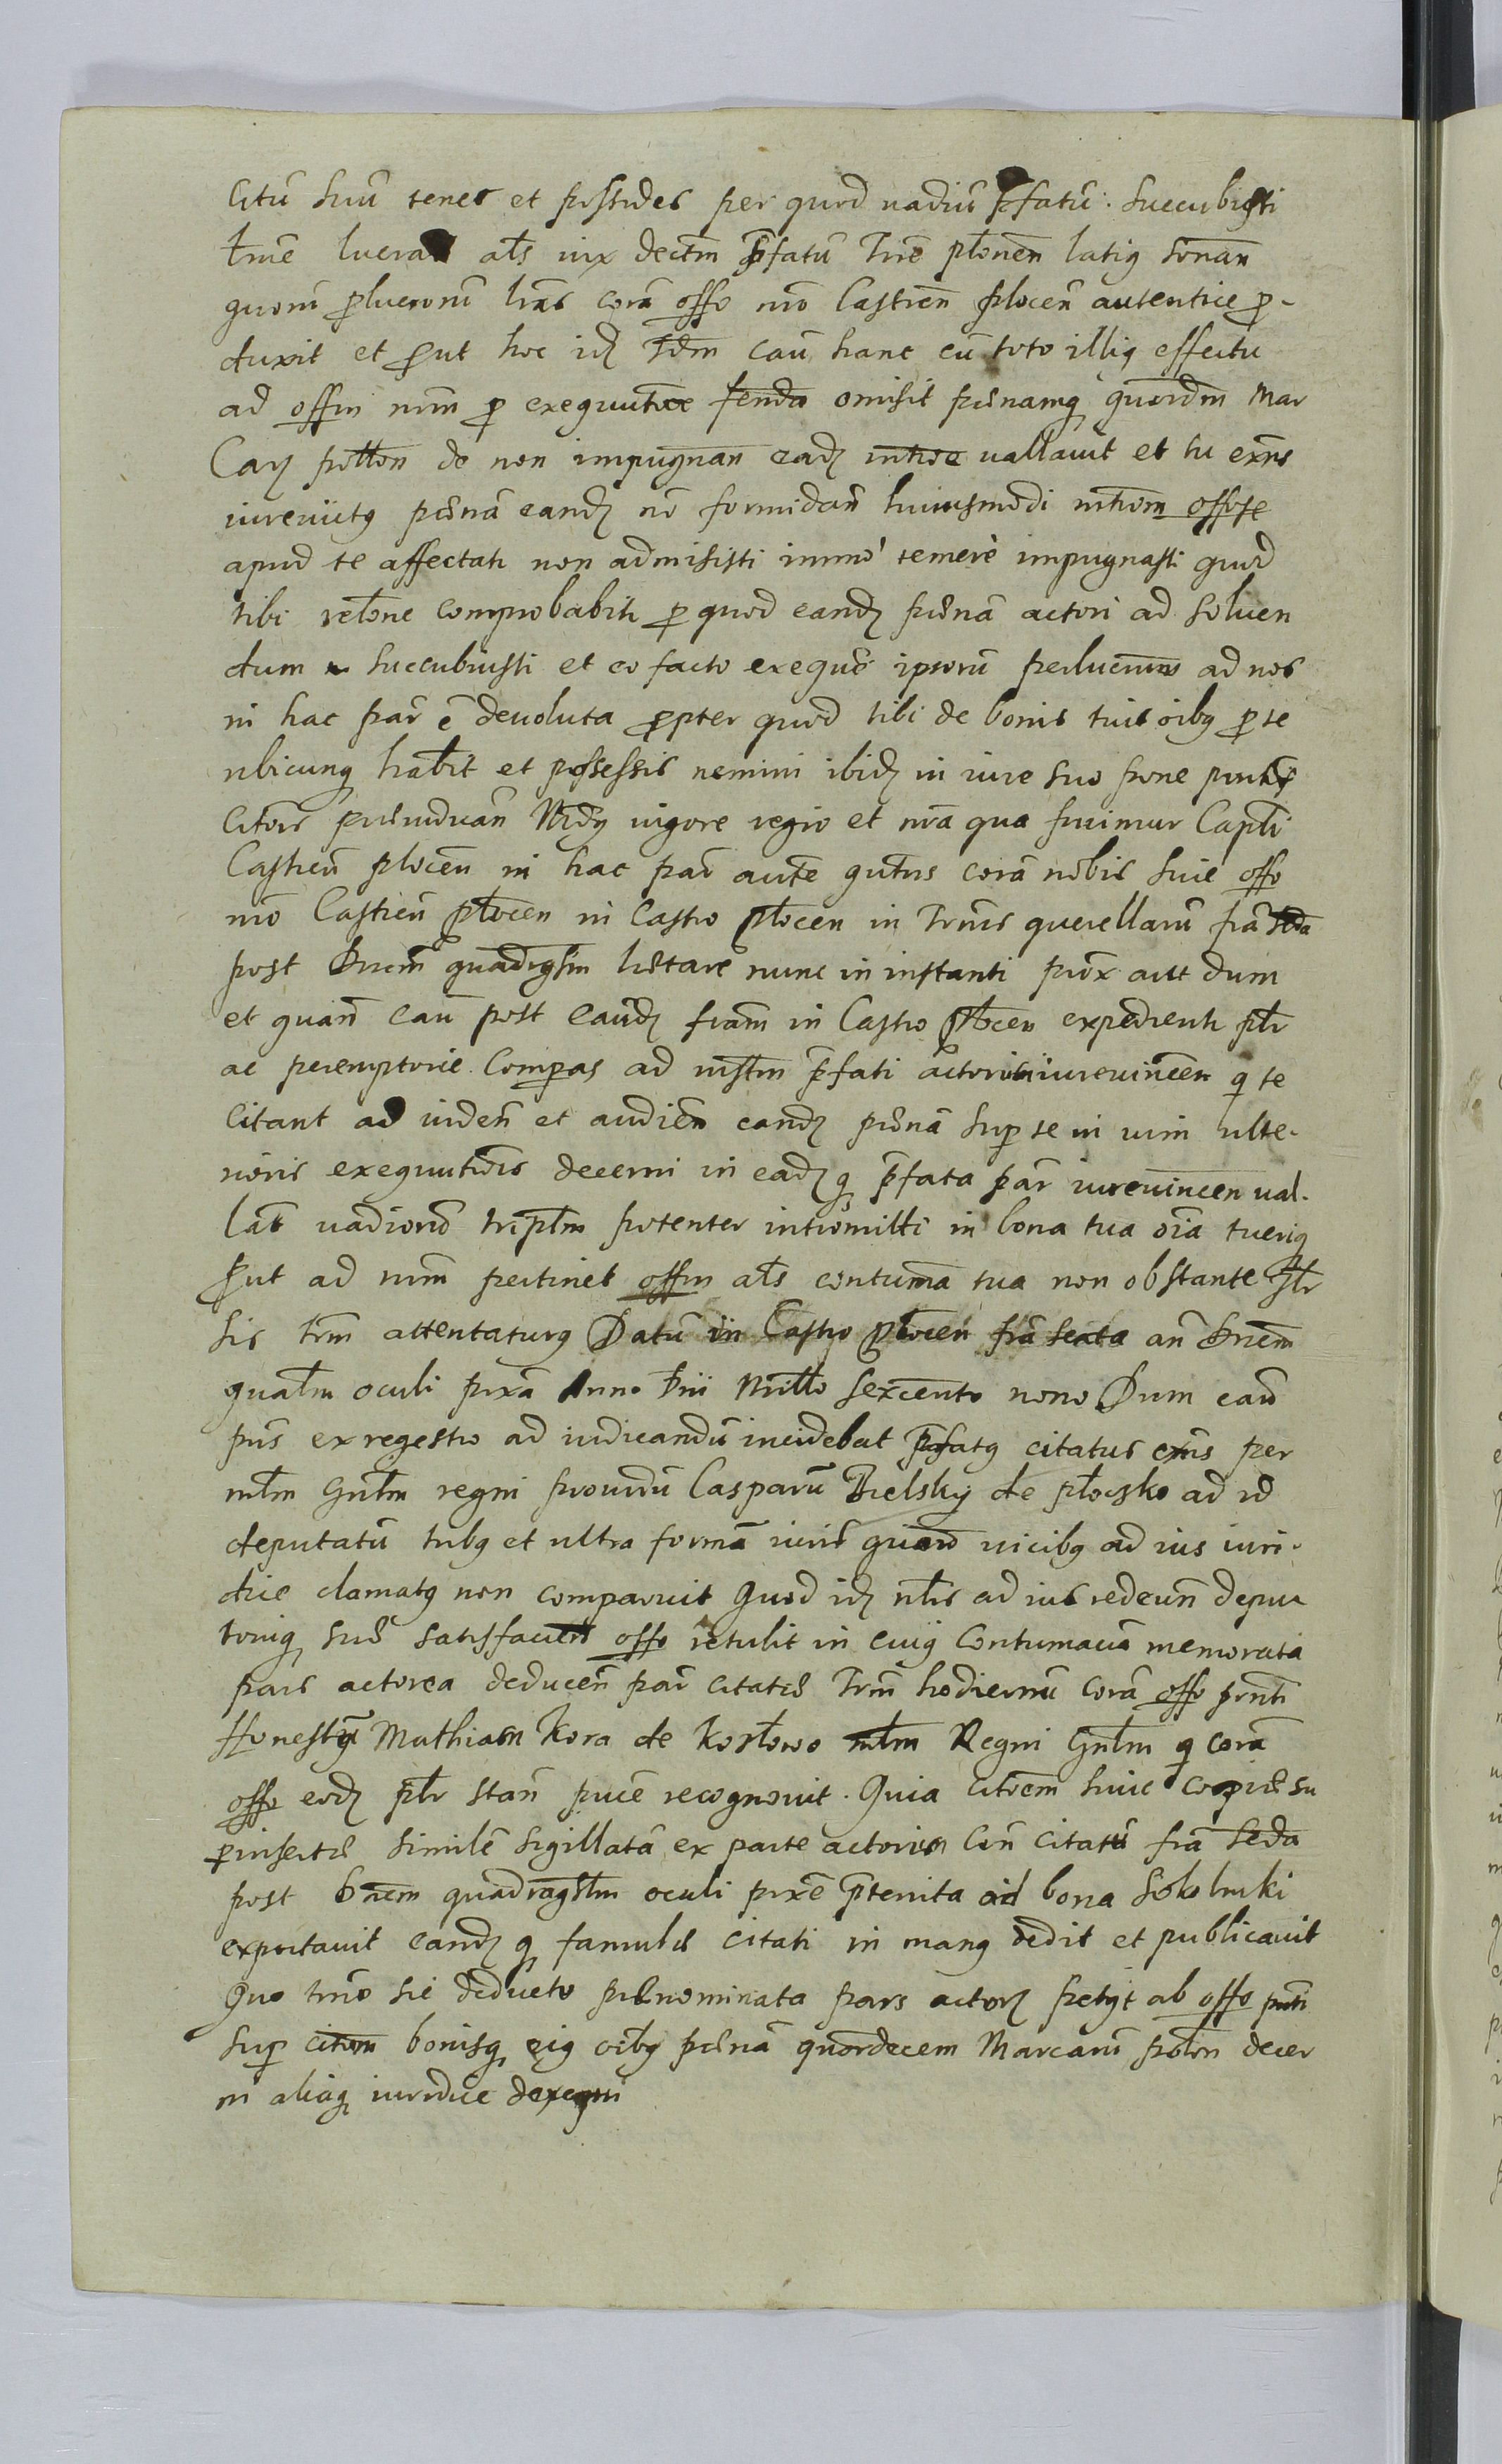 citũ suũ tenes et possides per quod vadiũ p̃fatũ. Succubuisti
ał̃s iux dectm̃ p̃fatũ Trẽ płonen̄ latiq sonan̄
quorũ p̱lucrorũ lr̃as corã offo nr̃o Castren̄ plocen̄ autentice p̱-
duxit et p̱ut hoc idȝ Tdm̃ cau hanc cũ toto illiq effectu
ad offm nr̃m p̱ exequutõe fenda omisit pœnamqȝ quordm̃ Mar
Carȝ połłon de non impugnan̄ eadȝ intrõe vallavit et tu exñs
iurevictq pœnã eandȝ nõ formidan̄ huiusmodi intrõm offose
apud te affectati non admisisti immò temerè impugnasti quod
tibi relõne comprobabit p̱ quod eandȝ pœnã actori ad soluen
dum succubuisti et eo facto exequõ ipsorũ perlucrorum ad nos
in hac par̃ ẽ devoluta p̱pter quod tibi de bonis tuis oibq p̱ te
ubicunqȝ habit et possessis nemini ibidȝ in iure suo prone
citõis Mdȝ vigore regio et nr̃a qua fruimur Capłi
Castren̄ plocen̄ in hac par̃ autẽ qutns corã nobis sive offo
nr̃o Castren̄ płocen in Castro płocen in Trm̃is querellarũ fr̃ã scda
post Dnĩcm̃ quadrgsm̃ lætare nunc in instanti prox aut dum
et quan̄ cau post eandȝ fr̃am in Castro płocen expedienti płr
ac peremptorie Compareas ad instm̃ p̃fati actoris iurevincen̄ q te
citant ad viden̄ et audien̄ eandȝ pœnã sup te in vim ulte-
rioris exequutiõis decerni in eadȝqȝ p̃fata par̃ iurevincen val-
lat vadiorũ tripłm potenter intromitti in bona tua oĩa tuerisq
p̱ut ad nr̃m pertinet offm ał̃s contuma tua non obstante płr
sis trm̃ attentaturq Datũ in Castro płocen fr̃ã sexta an̄ Dnĩcm̃
quałm oculi proxã Anno Dñi Millo sexcento nono Dum cau
pñs ex regestro ad iudicandũ incidebat p̃fatq citatus exñs per
mł̃m Gnł̃m regni providũ Casparũ Bielsky de płoczko ad id
deputatũ tribq et ultra formã iuris quarto vicibq ad ius iuri-
dice clamatq non comparuit Quod idȝ mł̃is ad ius redeun̄ depu
toniqȝ suæ satisfacien̄ offo retulit in cuiq Contumaciã memorata
pars actorea deducen̄ par̃ citatæ Trm̃ hodiernũ Corã offo prn̄ti
Honestũ Mathiam Kora de Kosłowo mł̃m Regni Gnł̃m q corã
offo eodȝ płr stan̄ pu͠cẽ recognovit. Quia citõem huic copiæ su
p̱insertæ similẽ sigillatã ex parte actoris Cin̄ citatũ fr̃ã secda
post Dnĩcm̃ quadragsłm oculi proxẽ p̃terita ad bona Sokolniki
exportavit eandȝqȝ famulis citati in manq dedit et publicavit
Quo tm̃io sic deducto prænominata pars actorȝ petijt ab offo pn̄ti
sup citum bonisqȝ eiq oibq pœnã quordecem Marcarũ połon decer
ni aliaqȝ iuridice